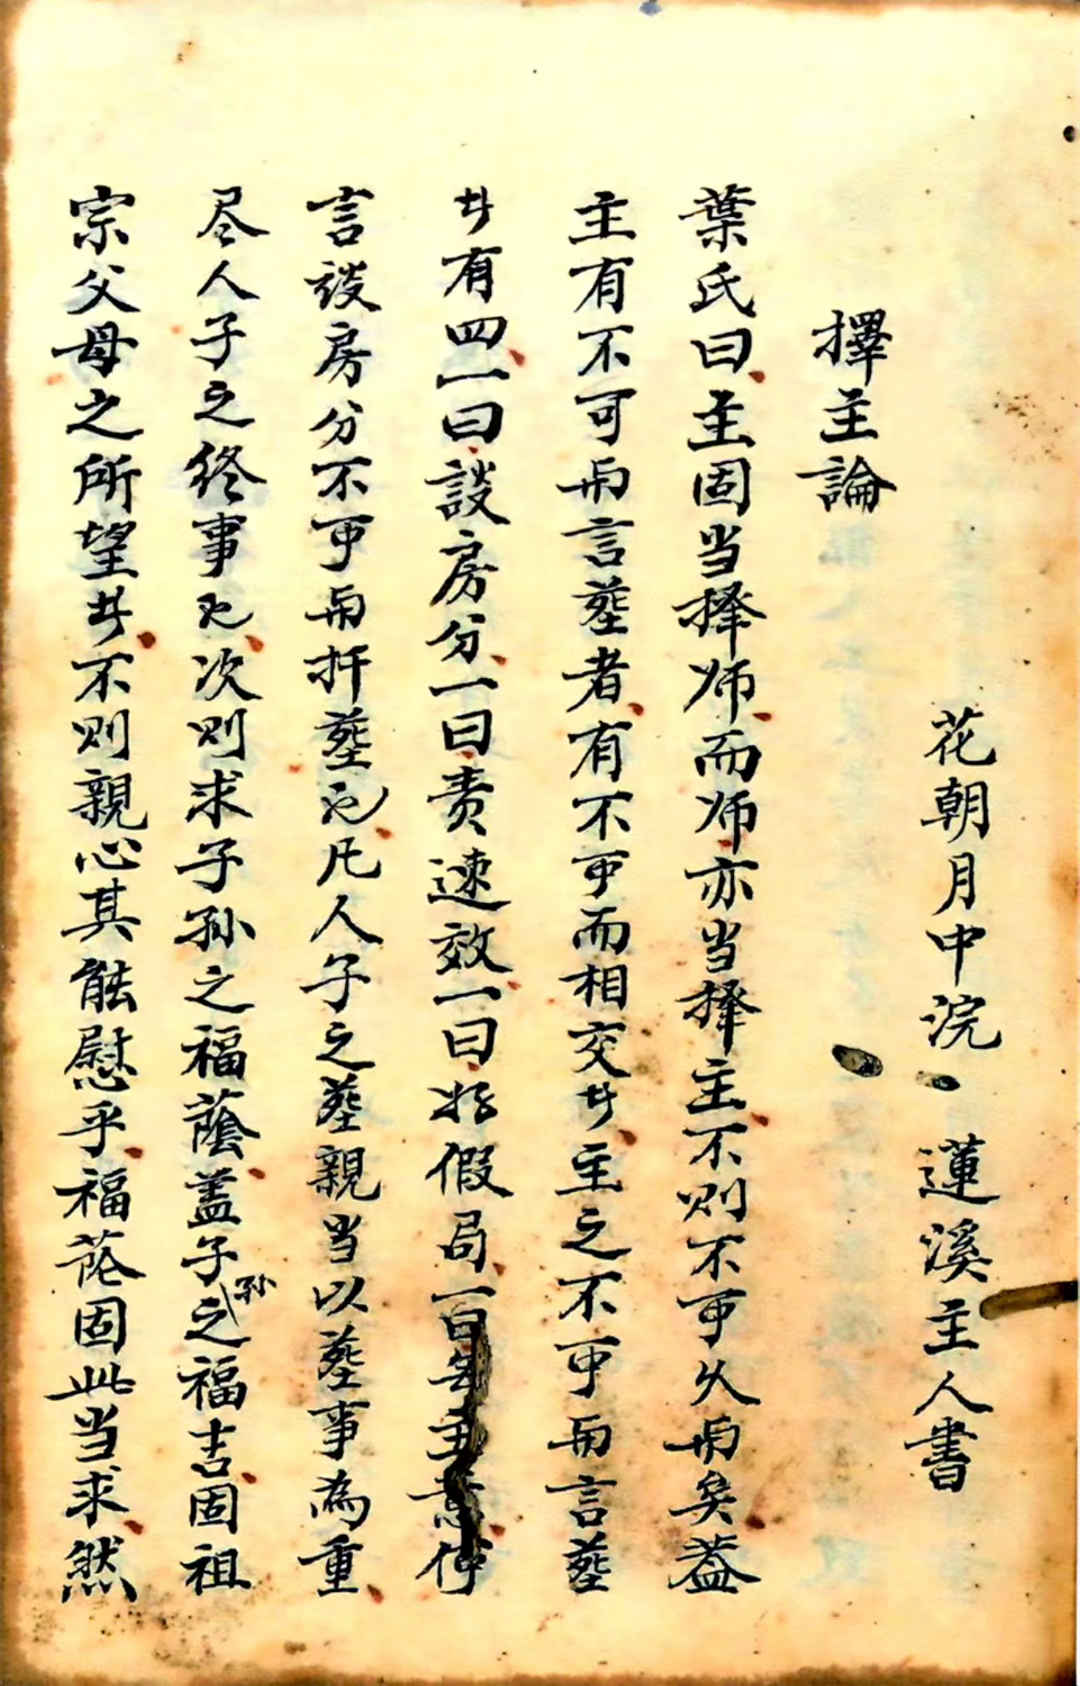 花朝月中浣 蓮溪主人書
擇主論
葉氏曰主固当择师而师亦当择主不则不可久与矣蓋
主有不可与言塟者有不可而相交者主之不可与言塟
者有四一曰談房分一曰责速效一曰好假局一曰无主意何
言談房分不可与扦塟也凡人子之塟親当以塟事為重
尽人子之终事也次则求子孙之福蔭盖子孙之福吉固祖
宗父母之所望者不则親心其能慰乎福荫固此当求然